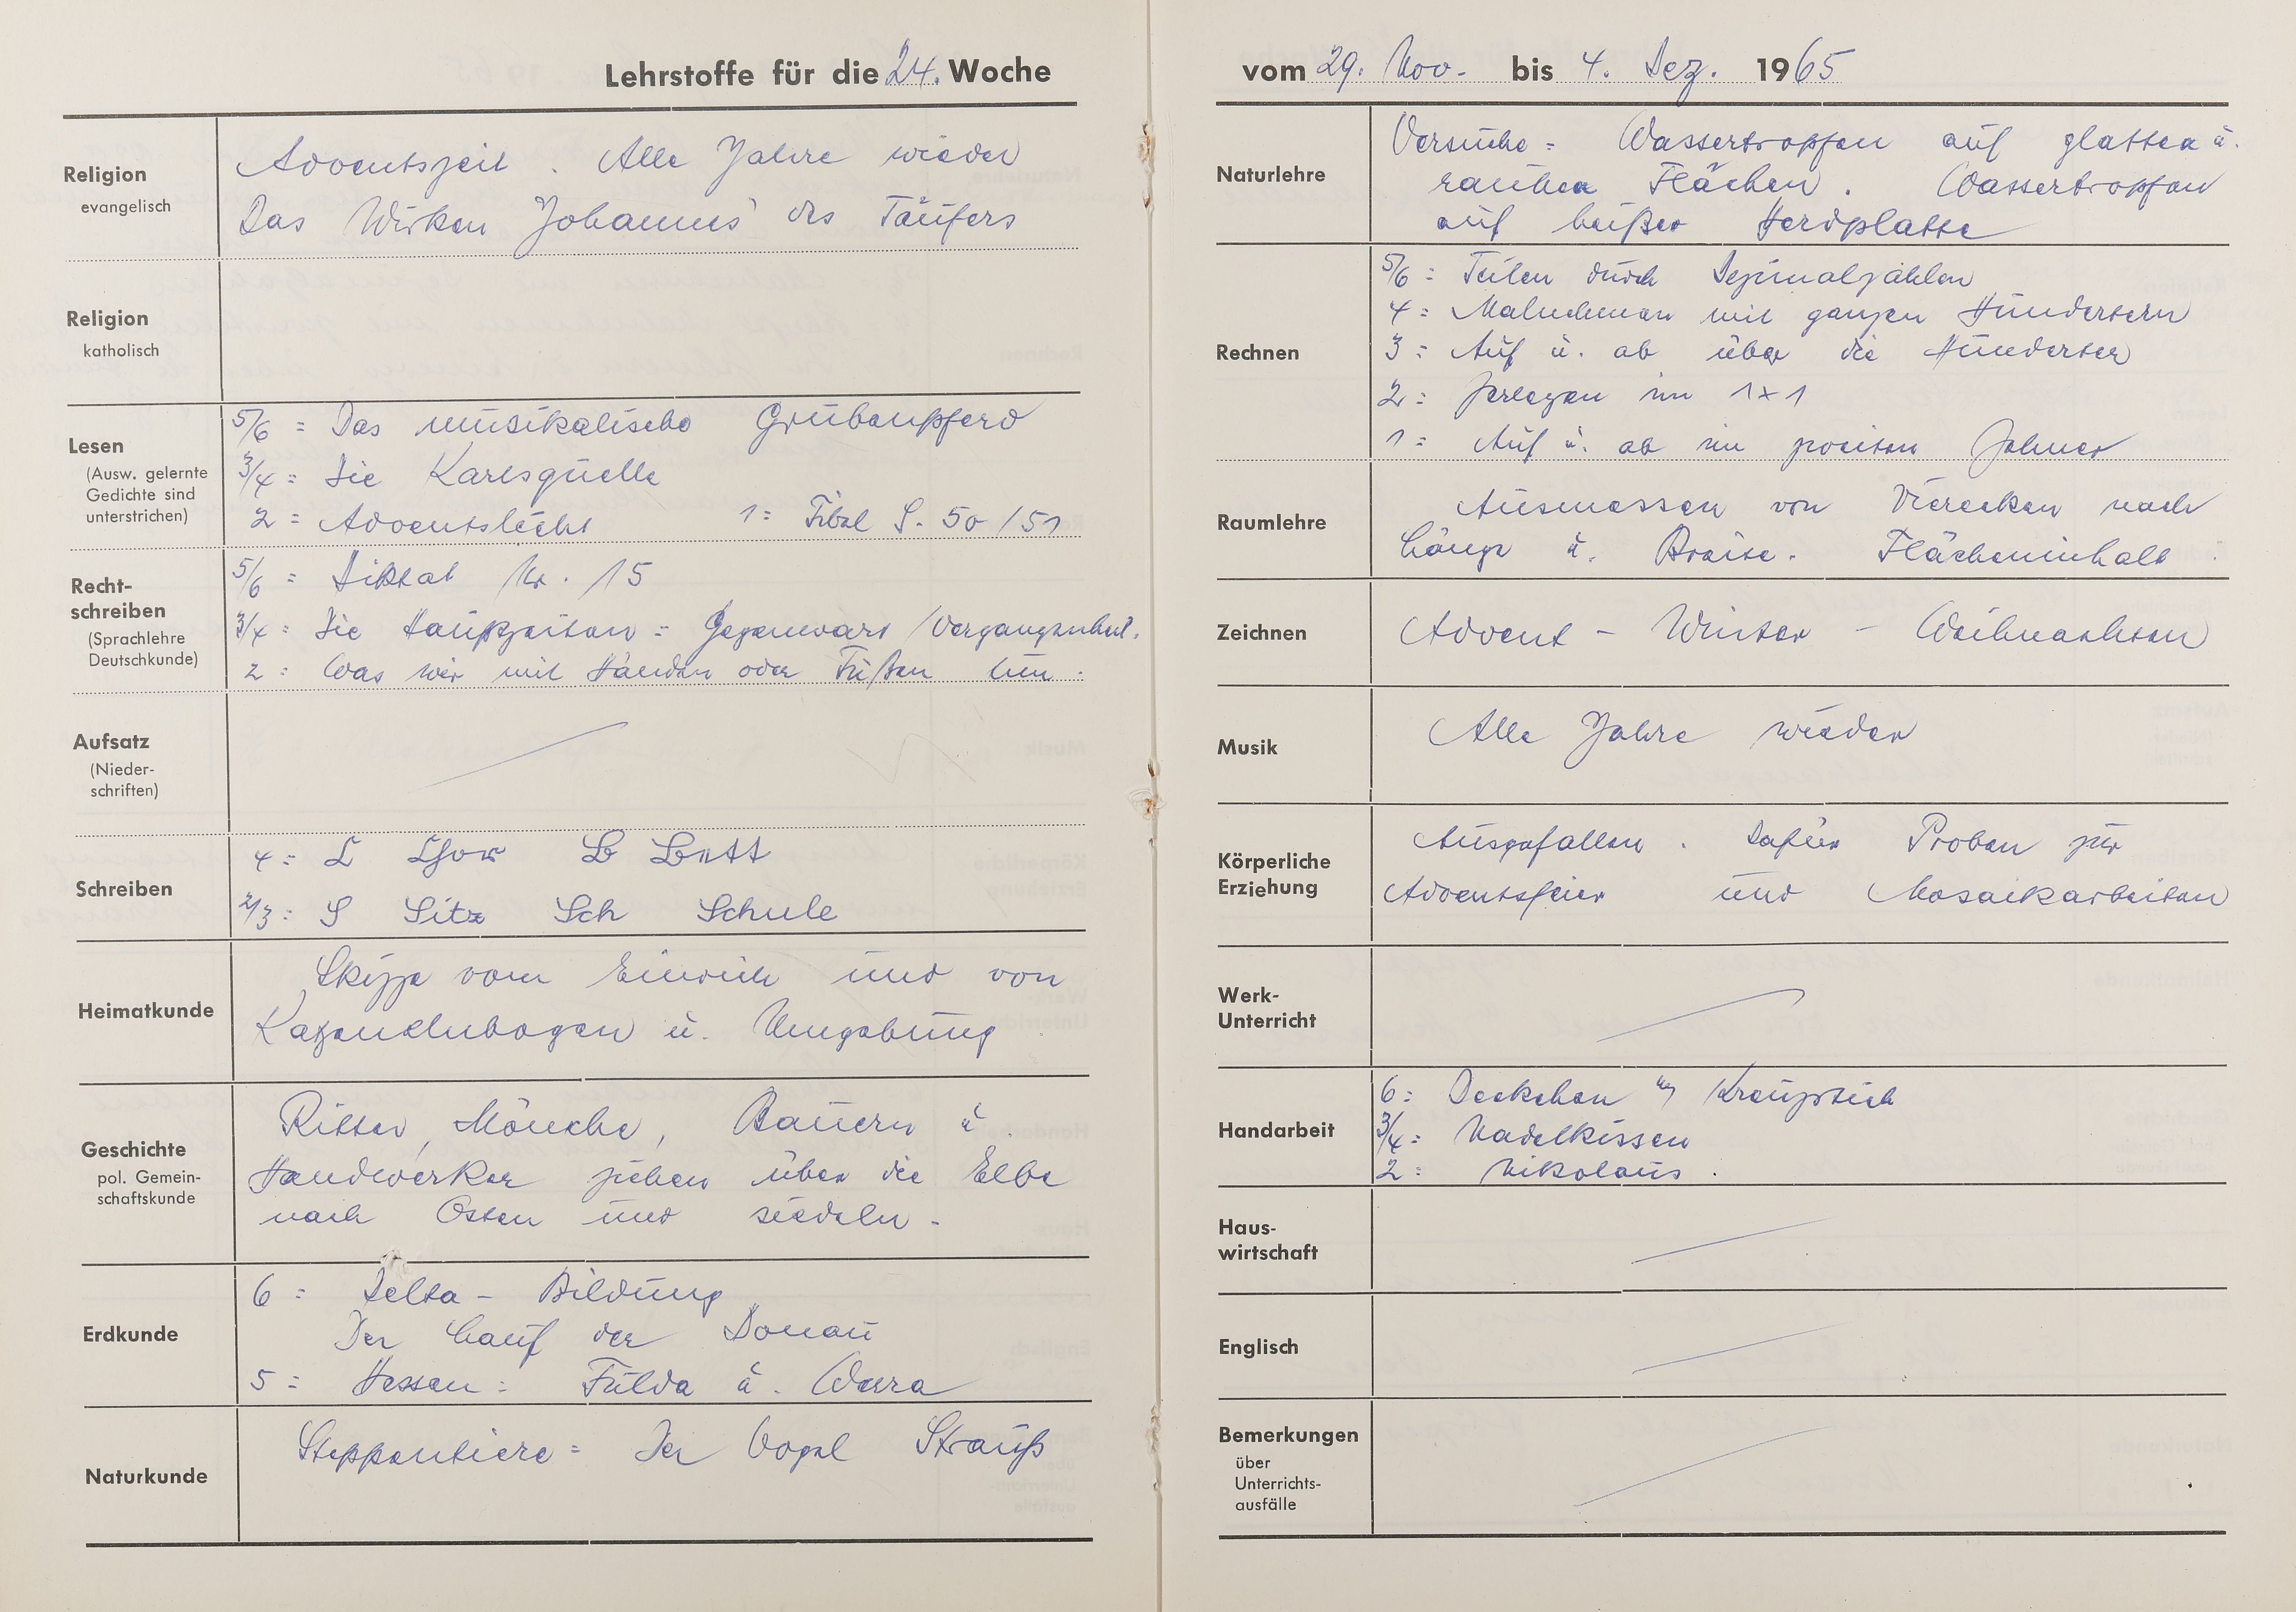 Lehrstoffe für die 24. Woche
Religion
evangelisch
Adventszeit. Alle Jahre wieder
Das Wirken Johannes des Täufers
Religion
katholisch
Lesen
(Ausw. gelernte
Gedichte sind
unterstrichen)
5/6 = Das musikalische Grubenpferd
3/4 = Die Karlsquelle
2 = Adventslicht 1 = Fibel S. 50/51
Recht-
schreiben
(Sprachlehre
Deutschkunde)
5/6 = Diktat Nr. 15
3/4 = Die Hauptzeiten = Gegenwart /Vergangenheit.
2 = Was wir mit Händen oder Füßen tun.
Aufsatz
(Nieder-
schriften)
Schreiben
4 = C Chor B Bett
2/3 = S Sitz Sch Schule
Heimatkunde
Skizze vom Einrich und von
Katzenelnbogen u. Umgebung
Geschichte
pol. Gemein-
schaftskunde
Ritter, Mönche, Bauern u.
Handwerker ziehen über die Elbe
nach Osten und siedeln.
Erdkunde
6 = Delta-Bildung
Der Lauf der Donau
5 = Hessen: Fulda u. Werra
Naturkunde
Steppentiere = Der Vogel Strauß
vom 29. Nov. bis 4. Dez. 1965
Naturlehre
Versuche = Wassertropfen auf glatten u.
rauhen Flächen. Wassertropfen
auf heißer Herdplatte
Rechnen
5/6 = Teilen durch Dezimalzahlen
4 = Malnehmen mit ganzen Hundertern
3 = Auf u. ab über die Hunderter
2 = Zerlegen im 1x1
1 = Auf u. ab im zweiten Zehner
Raumlehre
Ausmessen von Vierecken nach
Länge u. Breite. Flächeninhalt.
Zeichnen
Advent - Winter - Weihnachten
Musik
Alle Jahre wieder
Körperliche
Erziehung
Ausgefallen. Dafür Proben zur
Adventsfeier und Mosaikarbeiten
Werk-
Unterricht
Handarbeit
6 = Deckchen Kreuzstich
3/4 = Nadelkissen
2 = Nikolaus.
Haus-
wirtschaft
Englisch
Bemerkungen
über
Unterrichts-
ausfälle